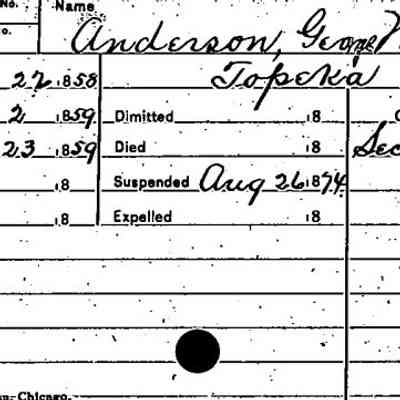 No. Name
o. Anderson, George
22 1858 Topeka
2 1859 Dimitted 18
23 1859 Died 18 Sec
18 Suspended Aug 26 1874
18 Expelled 18
Chicago.